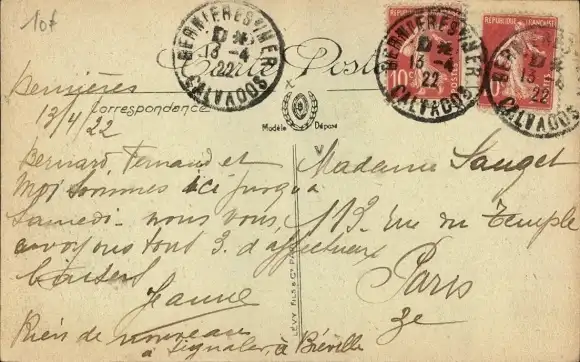 10f
BERNIERES S/MER
13-4
22
CALVADOS
BERNIERES S/MER
13-4
22
CALVADOS
BERNIERES S/MER
13
22
CALVADOS
RÉPUBLIQUE FRANÇAISE
10c
POSTES
Carte Postale
Correspondance
Modèle Déposé
Bernières
13/4/22
Bernard, Fernand et
moi sommes ici jusqu'à
samedi. nous vous
envoyons tout 3. d'affectueux
baisers
Jeanne
Rien de nouveau
à signaler, à Biéville
Madame Sauget
113. rue du Temple
Paris
3e
LÉVY FILS & Cie PARIS